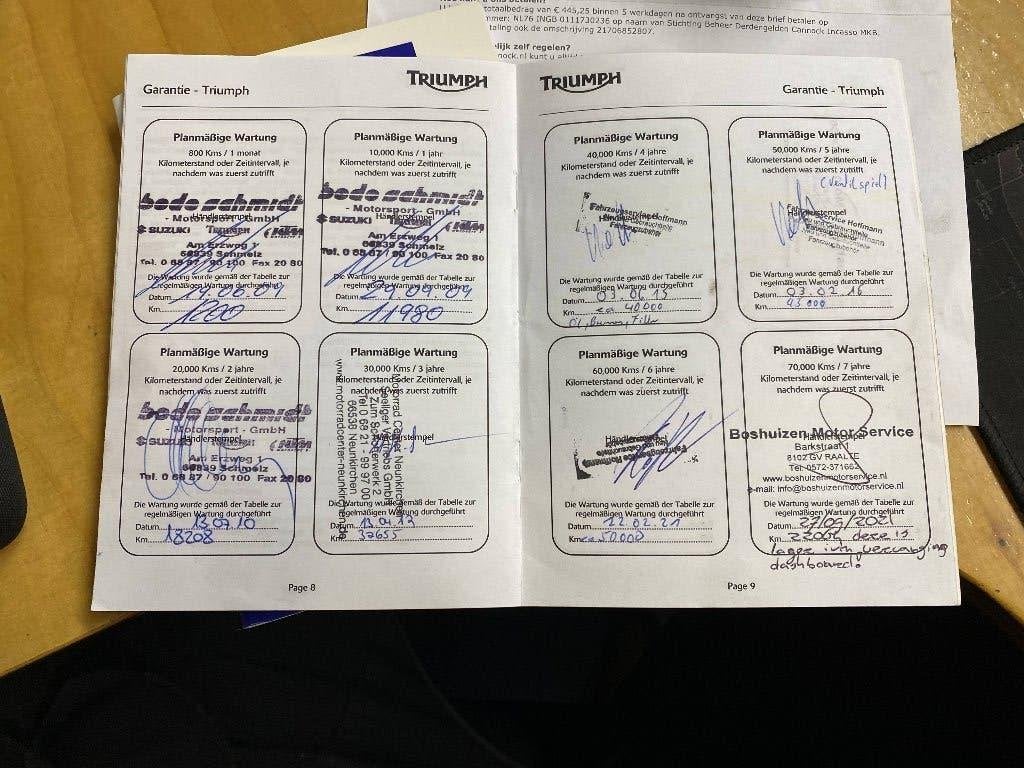 u betalen?
totaalbedrag van € 445,25 binnen 5 werkdagen na ontvangst van deze brief betalen op
mmer: NL76 INGB 0111730236 op naam van Stichting Beheer Derdengelden Cannock Incasso MKB.
taling ook de omschrijving 21706852807.
lijk zelf regelen?
nock.nl kunt u
Garantie - Triumph
TRIUMPH
Planmäßige Wartung
800 Kms / 1 monat
Kilometerstand oder Zeitintervall, je
nachdem was zuerst zutrifft
bodo schmidt
- Motorsport - GmbH
Händlerstempel
SUZUKI TRIUMPH KTM
Am Erzweg 1
66839 Schmelz
Tel. 0 68 87 / 90 100, Fax 20 80
Die Wartung wurde gemäß der Tabelle zur
regelmäßigen Wartung durchgeführt
Datum
Km 1200
Planmäßige Wartung
10,000 Kms / 1 jahr
Kilometerstand oder Zeitintervall, je
nachdem was zuerst zutrifft
bodo schmidt
- Motorsport - GmbH
Händlerstempel
SUZUKI TRIUMPH KTM
Am Erzweg 1
66839 Schmelz
Tel. 0 68 87 / 90 100, Fax 20 80
Die Wartung wurde gemäß der Tabelle zur
regelmäßigen Wartung durchgeführt
Datum 24.09.09
Km 11980
Planmäßige Wartung
20,000 Kms / 2 jahre
Kilometerstand oder Zeitintervall, je
nachdem was zuerst zutrifft
bodo schmidt
- Motorsport - GmbH
Händlerstempel
SUZUKI KTM
Am Erzweg 1
66839 Schmelz
Tel. 0 68 87 / 90 100, Fax 20 80
Die Wartung wurde gemäß der Tabelle zur
regelmäßigen Wartung durchgeführt
Datum 13.07.10
Km 18208
Planmäßige Wartung
30,000 Kms / 3 jahre
Kilometerstand oder Zeitintervall, je
nachdem was zuerst zutrifft
Händlerstempel
Motorrad Center Neunkirchen
Seeliger Vertriebs GmbH
Zum Schlauerwerk 2
Tel 0 68 21 / 99 97 0
66538 Neunkirchen
www.motorradcenter-neunkirchen.de
Die Wartung wurde gemäß der Tabelle zur
regelmäßigen Wartung durchgeführt
Datum 13.04.12
Km 37655
Page 8
TRIUMPH
Garantie - Triumph
Planmäßige Wartung
40,000 Kms / 4 jahre
Kilometerstand oder Zeitintervall, je
nachdem was zuerst zutrifft
Fahrzeugservice Hoffmann
Händlerstempel
Fahrzeugzubehör
Die Wartung wurde gemäß der Tabelle zur
regelmäßigen Wartung durchgeführt
Datum 03.06.15
Km ca 40000
Öl, Filter
Planmäßige Wartung
50,000 Kms / 5 jahre
Kilometerstand oder Zeitintervall, je
nachdem was zuerst zutrifft
(Ventilspiel)
Händlerstempel
Fahrzeugservice Hoffmann
Neu und Gebrauchtteile
Fahrzeugzubehör
Die Wartung wurde gemäß der Tabelle zur
regelmäßigen Wartung durchgeführt
Datum 03.02.16
Km 43000
Planmäßige Wartung
60,000 Kms / 6 jahre
Kilometerstand oder Zeitintervall, je
nachdem was zuerst zutrifft
Händlerstempel
Fahrzeugservice Hoffmann
Die Wartung wurde gemäß der Tabelle zur
regelmäßigen Wartung durchgeführt
Datum 12.02.21
Km ca 50.000
Planmäßige Wartung
70,000 Kms / 7 jahre
Kilometerstand oder Zeitintervall, je
nachdem was zuerst zutrifft
Boshuizen Motor Service
Händlerstempel
Barkstraat 1
8102 GV RAALTE
Tel. 0572-371662
www.boshuizenmotorservice.nl
e-mail: info@boshuizenmotorservice.nl
Die Wartung wurde gemäß der Tabelle zur
regelmäßigen Wartung durchgeführt
Datum 27/09/2021
Km deze is
lager ivm vervanging
dashboard!
Page 9